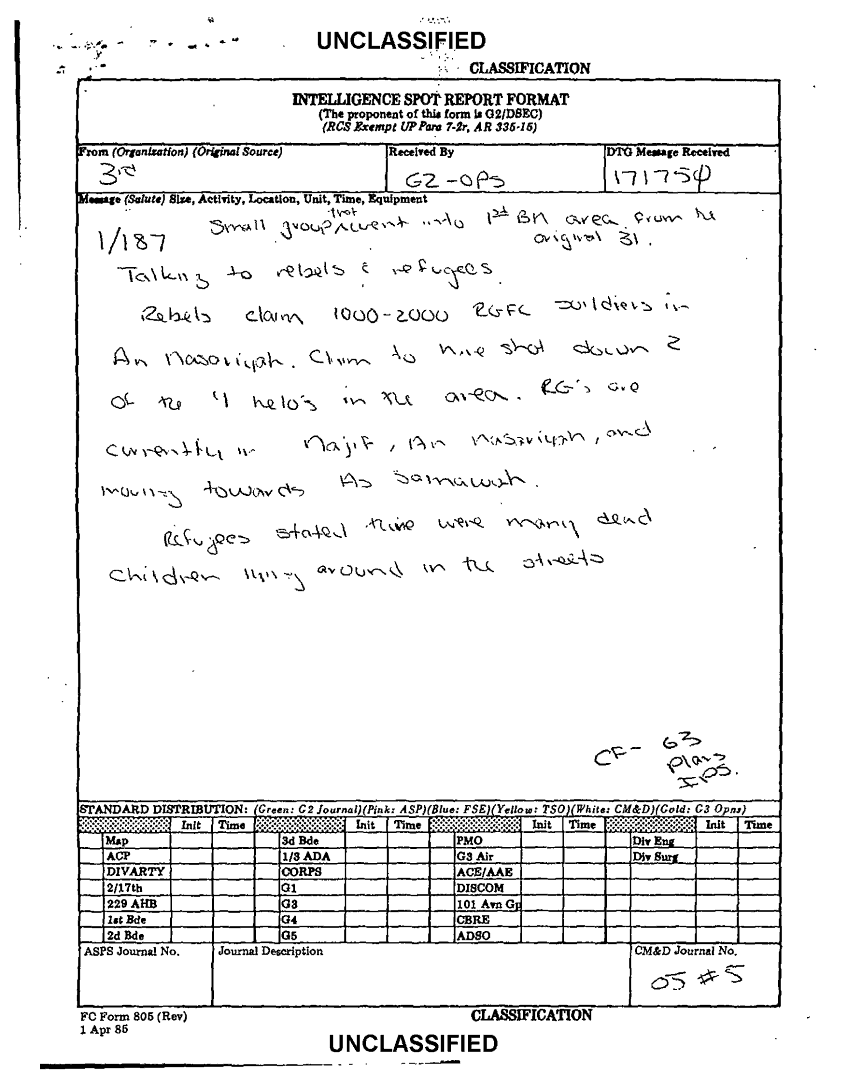 UNCLASSIFIED
CLASSIFICATION
INTELLIGENCE SPOT REPORT FORMAT
(The proponent of this form is G2/DSEC)
(RCS Exempt UP Para 7-2r, AR 335-15)
From (Organization) (Original Source)
Received By
DTG Message Received
3rd
G2-OPS
171750
Message (Salute) Size, Activity, Location, Unit, Time, Equipment
that
1/187 Small group went into 1st BN area from the
original 31.
Talking to rebels & refugees
Rebels claim 1000-2000 RGFC in
An Nasariyah. Claim to have shot down 2
of the 4 helo's in the area. RG's are
currently in Najif, An Nasariyah, and
moving towards As Samawah.
Refugees stated there were many dead
children lying around in the streets
CF- G3
Plans
IPS.
STANDARD DISTRIBUTION: (Green: G2 Journal)(Pink: ASP)(Blue: FSE)(Yellow: TSO)(White: CM&D)(Gold: G3 Opns)
Init Time Init Time Init Time Init Time
Map 3d Bde PMO Div Eng
ACP 1/3 ADA G3 Air Div Surg
DIVARTY CORPS ACE/AAE
2/17th G1 DISCOM
229 AHB G3 101 Avn Gp
1st Bde G4 CBRE
2d Bde G5 ADSO
ASPS Journal No. Journal Description CM&D Journal No.
05 #5
FC Form 805 (Rev)
1 Apr 85
CLASSIFICATION
UNCLASSIFIED